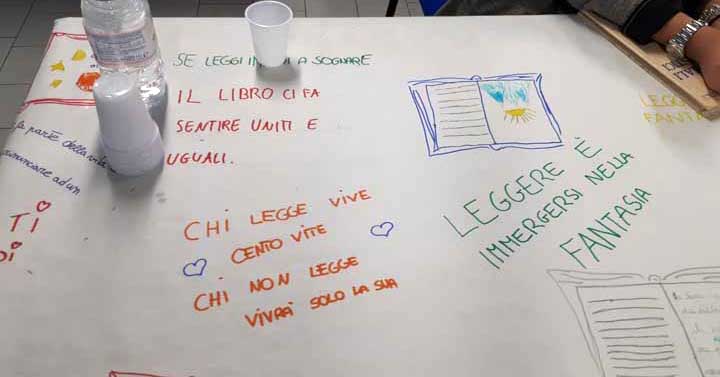 SE LEGGI IN A SOGNARE
IL LIBRO CI FA
SENTIRE UNITI E
UGUALI.
la parte della
rinunciare ad un
TI
CHI LEGGE VIVE
CENTO VITE
CHI NON LEGGE
VIVRÀ SOLO LA SUA
LEGGERE È
IMMERGERSI NELLA
FANTASIA